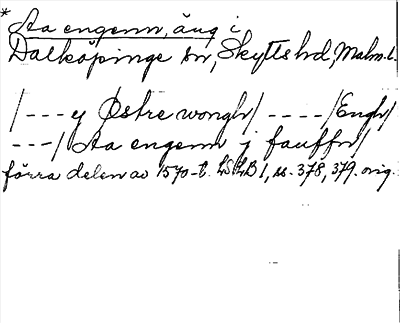 * Aa engenn, äng i
Dalköpinge sn, Skytts hd, Malm. l.
/--- y Østre wongh/ ---- /Engh/
---/ Aa engenn j fauffnn/
förra delen av 1570-t. LSLB 1, ss. 378, 379. orig.